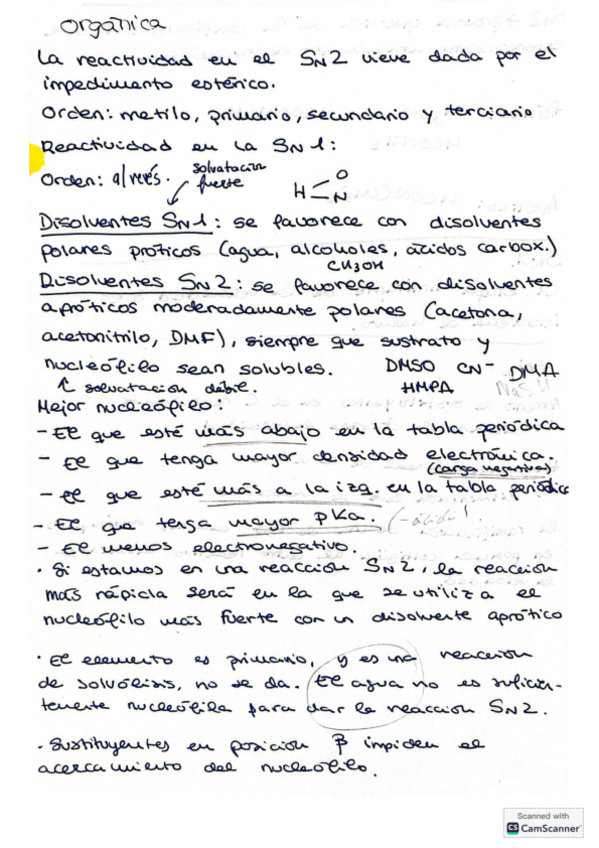 orgánica
La reactividad en el SN2 viene dada por el
impedimento estérico.
Orden: metilo, primario, secundario y terciario
Reactividad en la SN1:
Orden: al revés. solvatación
fuerte
H O
N
Disolventes SN1: se favorece con disolventes
polares próticos (agua, alcoholes, ácidos carbox.)
CH3OH
Disolventes SN2: se favorece con disolventes
apróticos moderadamente polares (acetona,
acetonitrilo, DMF), siempre que sustrato y
nucleófilo sean solubles. DMSO CN- DMA
↑ solvatación débil. HMPA
Mejor nucleófilo:
- El que esté más abajo en la tabla periódica
- El que tenga mayor densidad electrónica.
(carga negativa)
- El que esté más a la izq. en la tabla periódica
- El que tenga mayor pKa. (-ácido!
- El menos electronegativo.
· Si estamos en una reacción SN2, la reacción
más rápida será en la que se utiliza el
nucleófilo más fuerte con un disolvente aprótico
· El elemento es primario, y es una reacción
de solvólisis, no se da. El agua no es suficien-
temente nucleófila para dar la reacción SN2.
· Sustituyentes en posición β impiden el
acercamiento del nucleófilo.
Scanned with
CS CamScanner